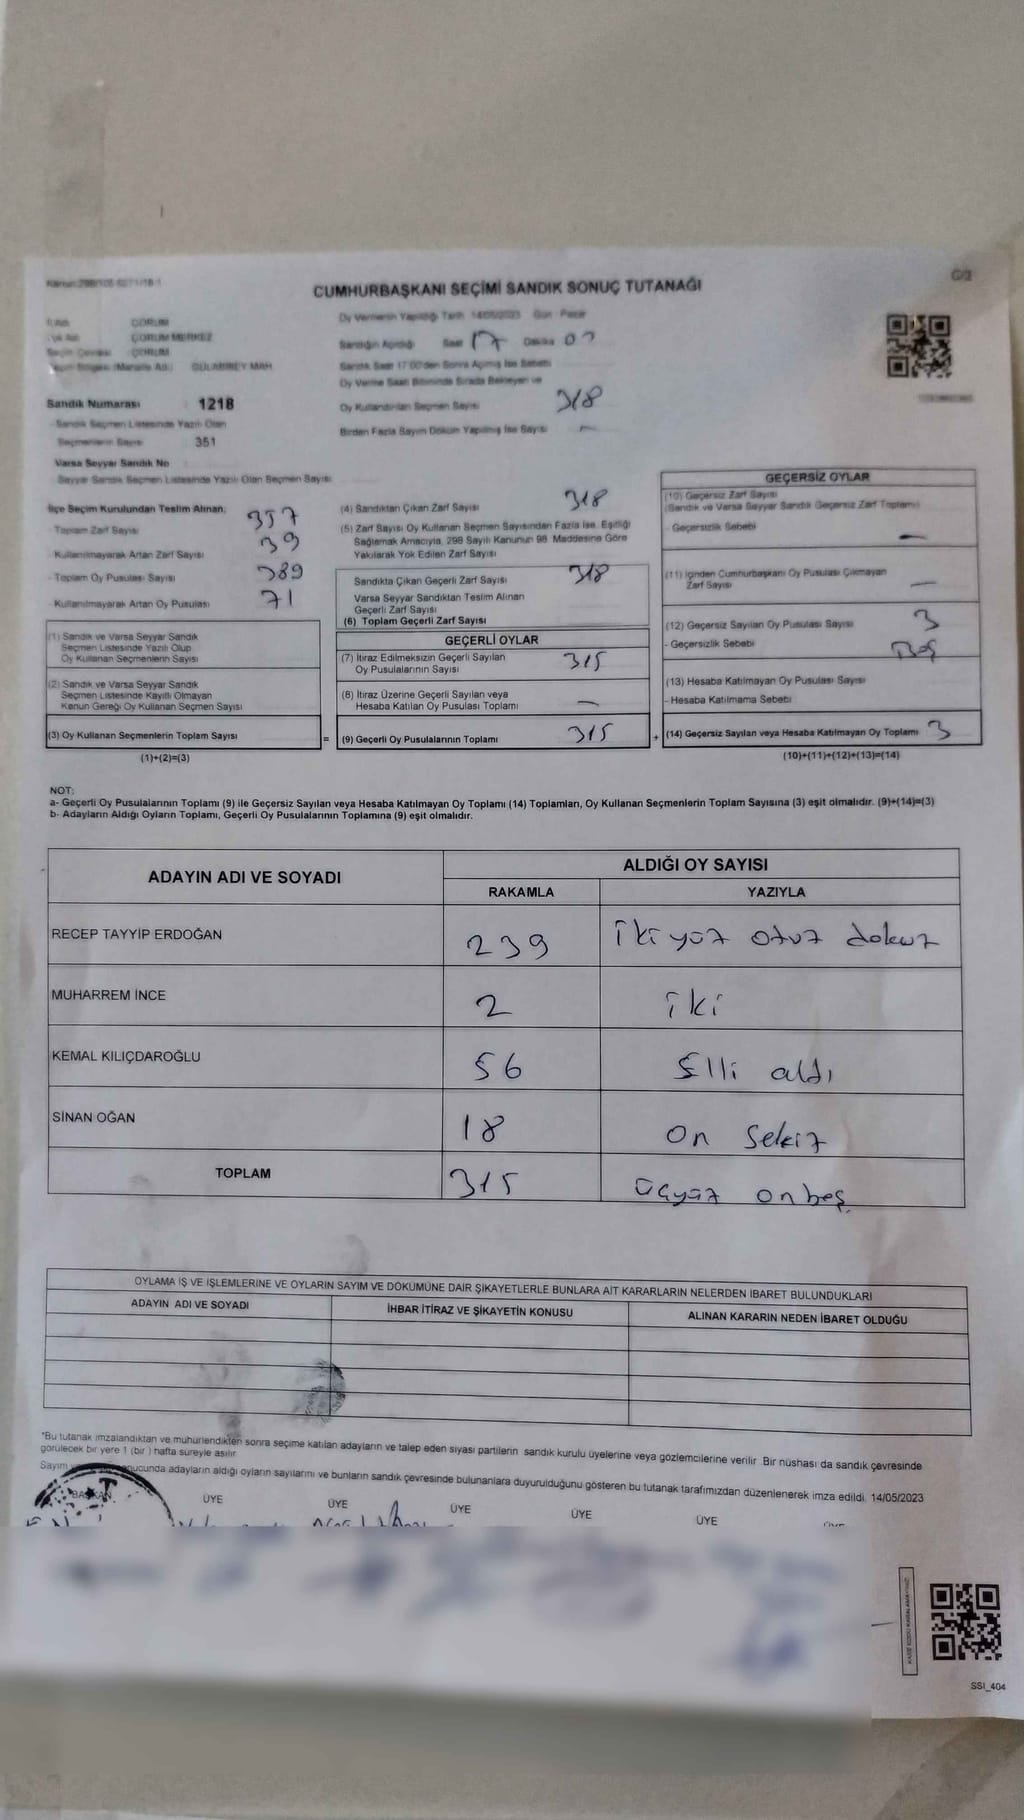 CUMHURBAŞKANI SEÇİMİ SANDIK SONUÇ TUTANAĞI
G/2
Oy Vermenin Yapıldığı Tarih 14/05/2023 Gün : Pazar
ÇORUM
ÇORUM MERKEZ
ÇORUM
Sandığın Açıldığı Saat 17 Dakika
Sandık Saat 17:00'den Sonra Açılmış İse Sebebi
Oy Verme Saati Bitiminde Sırada Bekleyen ve
Oy Kullandırılan Seçmen Sayısı 318
Birden Fazla Sayım Döküm Yapılmış İse Sayısı –
GÜLABİBEY MAH.
Sandık Numarası : 1218
- Sandık Seçmen Listesinde Yazılı Olan
Seçmenlerin Sayısı : 351
Varsa Seyyar Sandık No
Seyyar Sandık Seçmen Listesinde Yazılı Olan Seçmen Sayısı:
İlçe Seçim Kurulundan Teslim Alınan;
- Toplam Zarf Sayısı 357
- Kullanılmayarak Artan Zarf Sayısı 39
- Toplam Oy Pusulası Sayısı 389
- Kullanılmayarak Artan Oy Pusulası 71
(1) Sandık ve Varsa Seyyar Sandık
Seçmen Listesinde Yazılı Olup
Oy Kullanan Seçmenlerin Sayısı
(2) Sandık ve Varsa Seyyar Sandık
Seçmen Listesinde Kayıtlı Olmayan
Kanun Gereği Oy Kullanan Seçmen Sayısı
(3) Oy Kullanan Seçmenlerin Toplam Sayısı =
(1)+(2)=(3)
(4) Sandıktan Çıkan Zarf Sayısı 318
(5) Zarf Sayısı Oy Kullanan Seçmen Sayısından Fazla İse, Eşitliği
Sağlamak Amacıyla, 298 Sayılı Kanunun 98. Maddesine Göre
Yakılarak Yok Edilen Zarf Sayısı
Sandıkta Çıkan Geçerli Zarf Sayısı 318
Varsa Seyyar Sandıktan Teslim Alınan
Geçerli Zarf Sayısı
(6) Toplam Geçerli Zarf Sayısı
GEÇERLİ OYLAR
(7) İtiraz Edilmeksizin Geçerli Sayılan
Oy Pusulalarının Sayısı 315
(8) İtiraz Üzerine Geçerli Sayılan veya
Hesaba Katılan Oy Pusulası Toplamı –
(9) Geçerli Oy Pusulalarının Toplamı 315 +
GEÇERSİZ OYLAR
(10) Geçersiz Zarf Sayısı
(Sandık ve Varsa Seyyar Sandık Geçersiz Zarf Toplamı)
- Geçersizlik Sebebi –
(11) İçinden Cumhurbaşkanı Oy Pusulası Çıkmayan
Zarf Sayısı –
(12) Geçersiz Sayılan Oy Pusulası Sayısı 3
- Geçersizlik Sebebi Boş
(13) Hesaba Katılmayan Oy Pusulası Sayısı
- Hesaba Katılmama Sebebi
(14) Geçersiz Sayılan veya Hesaba Katılmayan Oy Toplamı 3
(10)+(11)+(12)+(13)=(14)
NOT:
a- Geçerli Oy Pusulalarının Toplamı (9) ile Geçersiz Sayılan veya Hesaba Katılmayan Oy Toplamı (14) Toplamları, Oy Kullanan Seçmenlerin Toplam Sayısına (3) eşit olmalıdır. (9)+(14)=(3)
b- Adayların Aldığı Oyların Toplamı, Geçerli Oy Pusulalarının Toplamına (9) eşit olmalıdır.
ADAYIN ADI VE SOYADI ALDIĞI OY SAYISI
RAKAMLA YAZIYLA
RECEP TAYYİP ERDOĞAN 239 iki yüz otuz dokuz
MUHARREM İNCE 2 iki
KEMAL KILIÇDAROĞLU 56 Elli aldı
SİNAN OĞAN 18 on sekiz
TOPLAM 315 üçyüz onbeş
OYLAMA İŞ VE İŞLEMLERİNE VE OYLARIN SAYIM VE DÖKÜMÜNE DAİR ŞİKAYETLERLE BUNLARA AİT KARARLARIN NELERDEN İBARET BULUNDUKLARI
ADAYIN ADI VE SOYADI İHBAR İTİRAZ VE ŞİKAYETİN KONUSU ALINAN KARARIN NEDEN İBARET OLDUĞU
*Bu tutanak imzalandıktan ve mühürlendikten sonra seçime katılan adayların ve talep eden siyasi partilerin sandık kurulu üyelerine veya gözlemcilerine verilir. Bir nüshası da sandık çevresinde
görülecek bir yere 1 (bir) hafta süreyle asılır.
Sayım sonucunda adayların aldığı oyların sayılarını ve bunların sandık çevresinde bulunanlara duyurulduğunu gösteren bu tutanak tarafımızdan düzenlenerek imza edildi. 14/05/2023
BAŞKAN ÜYE ÜYE ÜYE ÜYE ÜYE
SSI_404